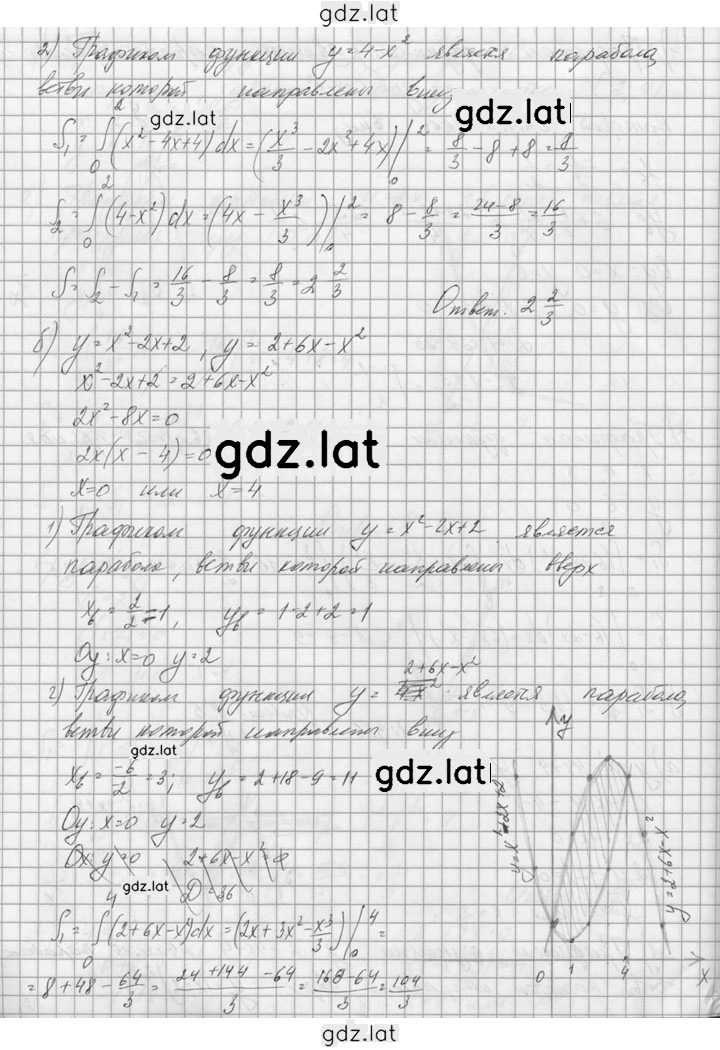 gdz.lat
2) Графиком функции y=4-x² является парабола,
ветви которой направлены вниз
gdz.lat
gdz.lat
S₁ = ∫₀² (x²-4x+4)dx = (x³/3 - 2x²+4x)|₀² = 8/3 - 8 + 8 = 8/3
S₂ = ∫₀² (4-x²)dx = (4x - x³/3)|₀² = 8 - 8/3 = 24-8/3 = 16/3
S = S₂ - S₁ = 16/3 - 8/3 = 8/3 = 2 2/3
Ответ: 2 2/3
б) y=x²-2x+2, y=2+6x-x²
x²-2x+2=2+6x-x²
2x²-8x=0
2x(x-4)=0
gdz.lat
x=0 или x=4
1) Графиком функции y=x²-2x+2 является
парабола, ветви которой направлены вверх
x_в = 2/2 = 1, y_в = 1-2+2=1
Oy: x=0 y=2
2+6x-x²
2) Графиком функции y= 4-x² является парабола,
ветви которой направлены вниз
gdz.lat
x_в = -6/-2 = 3; y_в = 2+18-9=11
gdz.lat
Oy: x=0 y=2
Ox: y=0 2+6x-x²=0
gdz.lat
D=36
S₁ = ∫₀⁴ (2+6x-x²)dx = (2x+3x²-x³/3)|₀⁴ =
= 8+48-64/3 = 24+144-64/3 = 168-64/3 = 104/3
y
y=x²-2x+2
y=2+6x-x²
0 1 4 x
gdz.lat